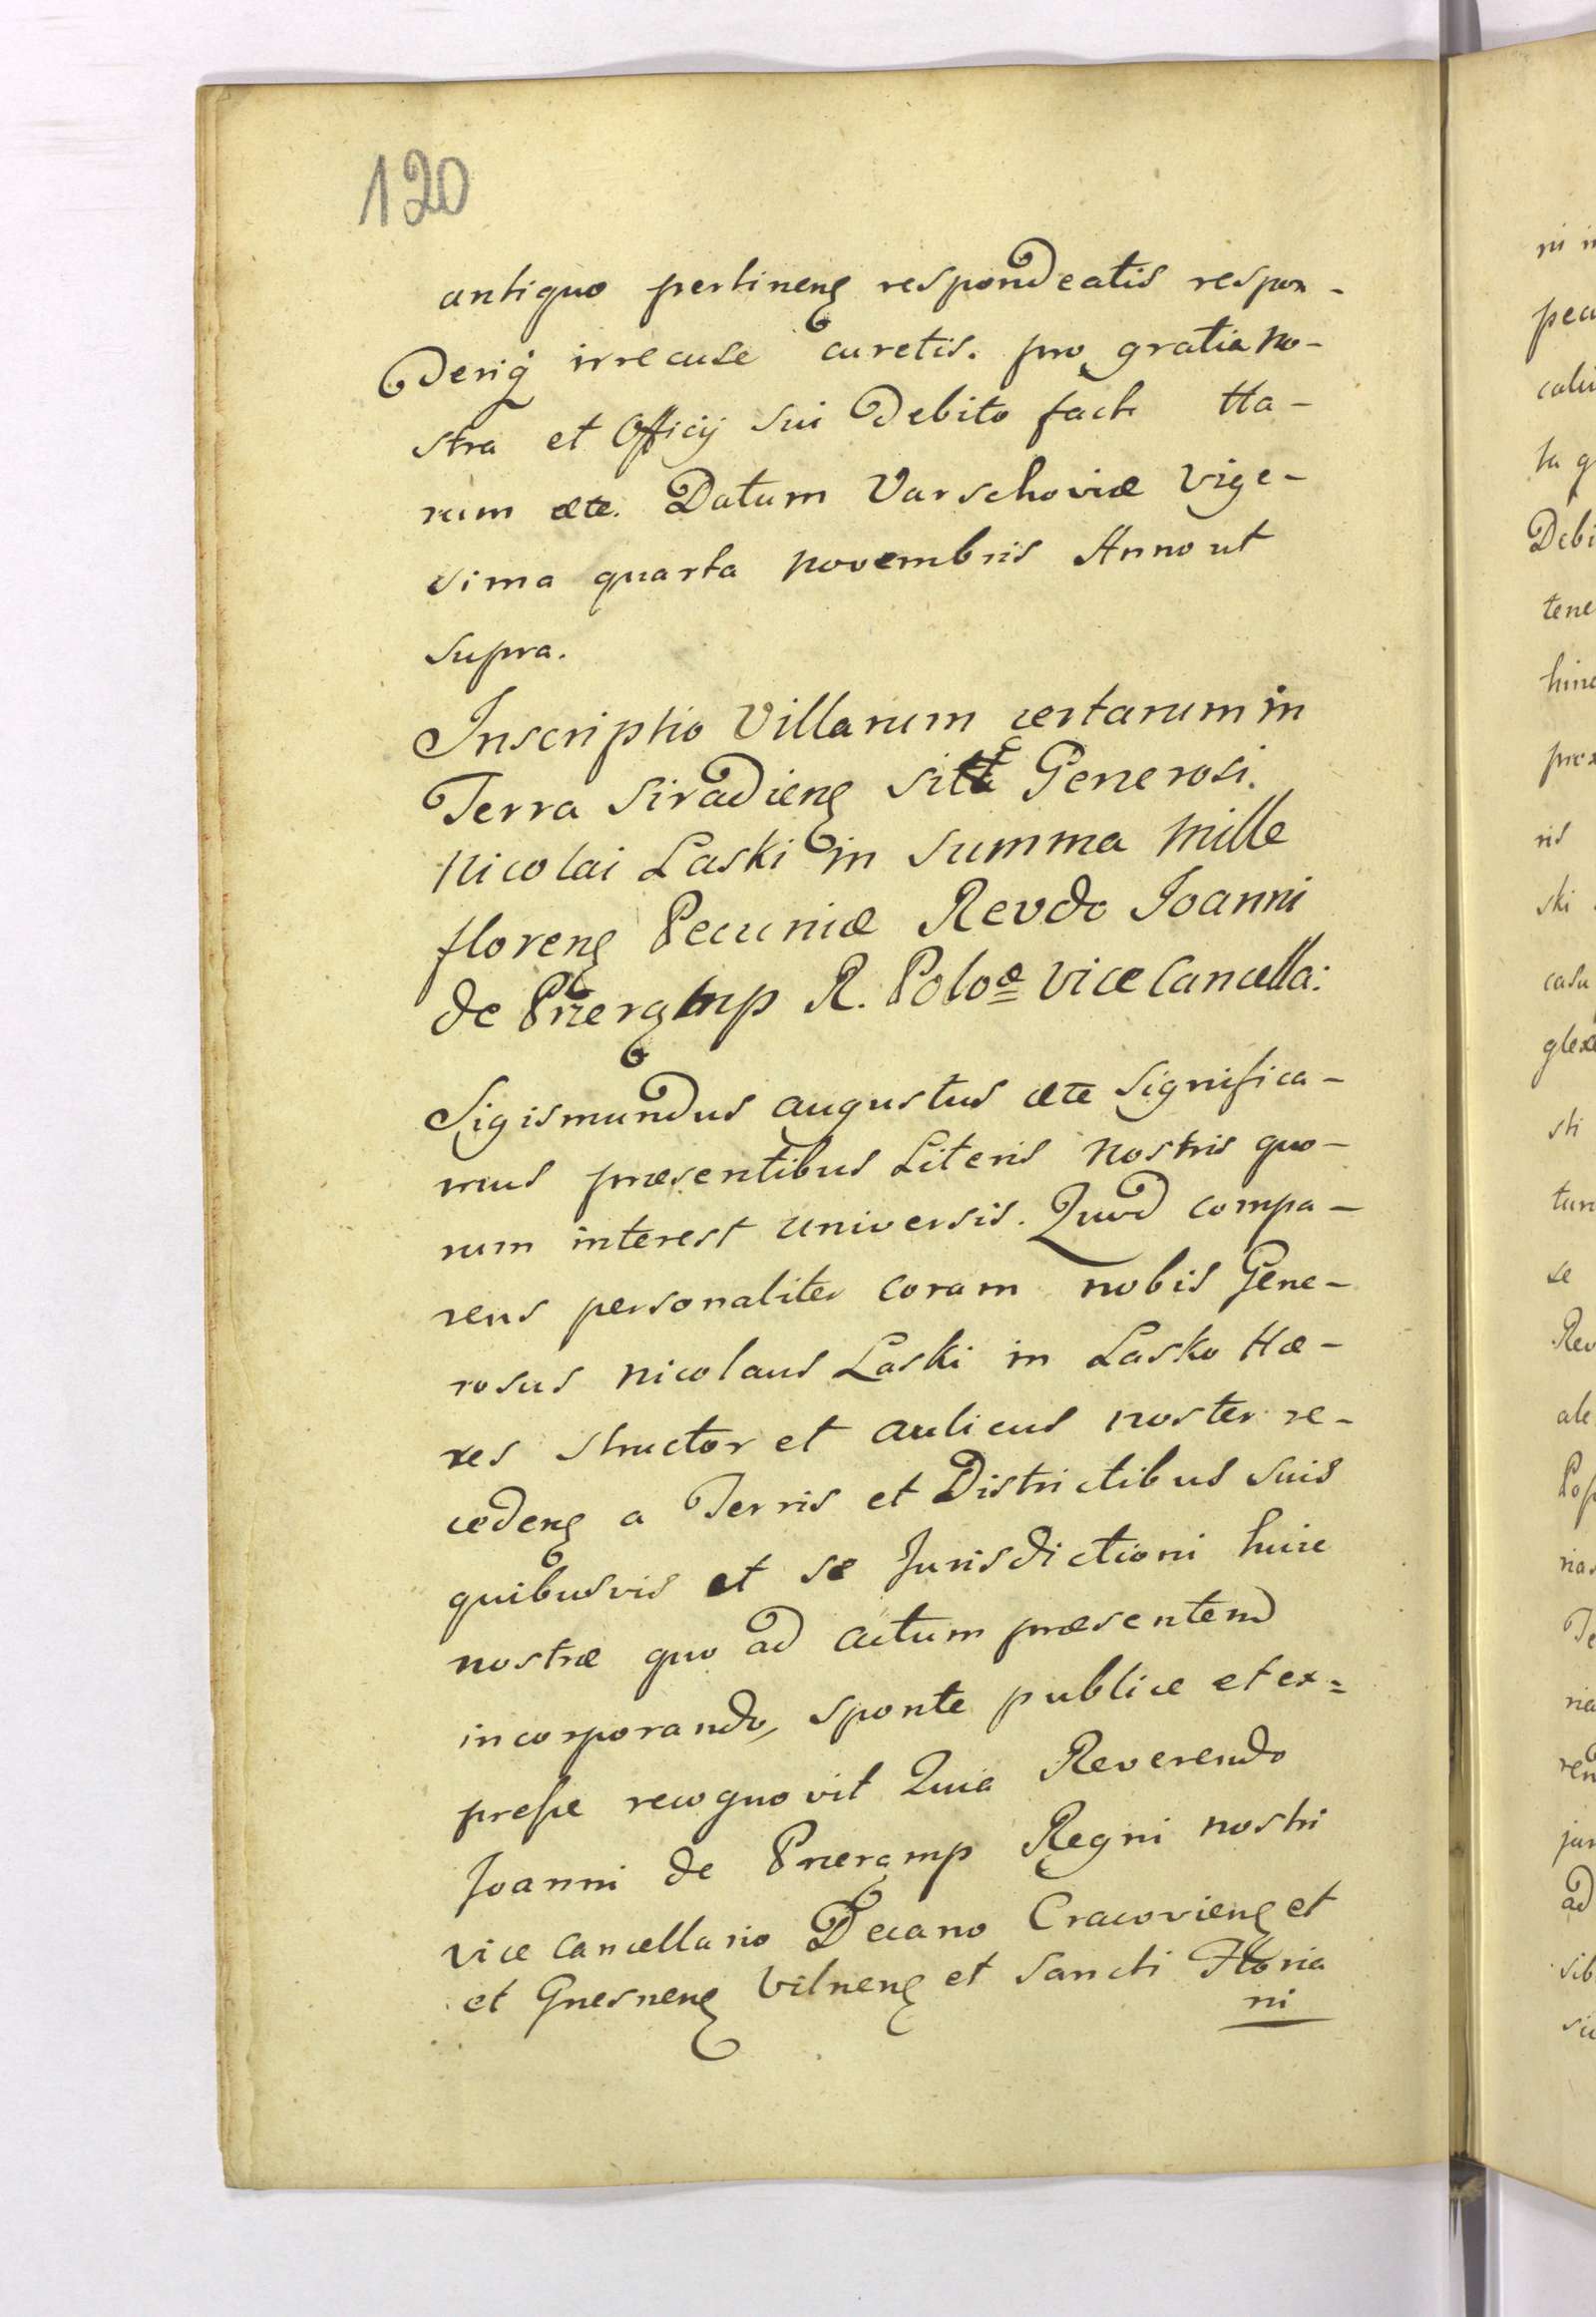 120
antiquo pertineng respondeatis respon-
deriq irrecuse curetis. pro gratia no-
stra et Officÿ sui Debito fach Ha-
rum ætc. Datum Varschoviæ Vige-
sima quarta novembris Anno ut
supra.
Inscriptio Villarum certarum in
Terra Siradieng Generosi.
Nicolai Laski in summa mille
floreng Pecuniæ Revdo Joanni
de Prreręmp R. Poloæ Vice Cancella:
Sigismundus augustus ætc significa-
mus præsentibus Literis nostris quo-
rum interest universis. Quod compa-
rens personaliter coram nobis Gene-
rosus Nicolaus Laski in Lasko Hæ-
res structor et aulicus noster re-
cedeng a Terris et Districtibus suis
quibusvis et se Jurisdictioni huic
nostræ quo ad actum præsentem
incorporando, sponte publice et ex=
presse recognovit Quia Reverendo
Joanni de Prreręmp Regni nostri
vice Cancellario Decano Cracovieng et
et Gnesneng Vilneng et Sancti Floria
ni
ni
pecu
ta q
Debi
tene
hinc
ris
ski
casu
sti
tur
se
Rev
ale
Pop
rias
Te
ria
ren
jur
ad
sib